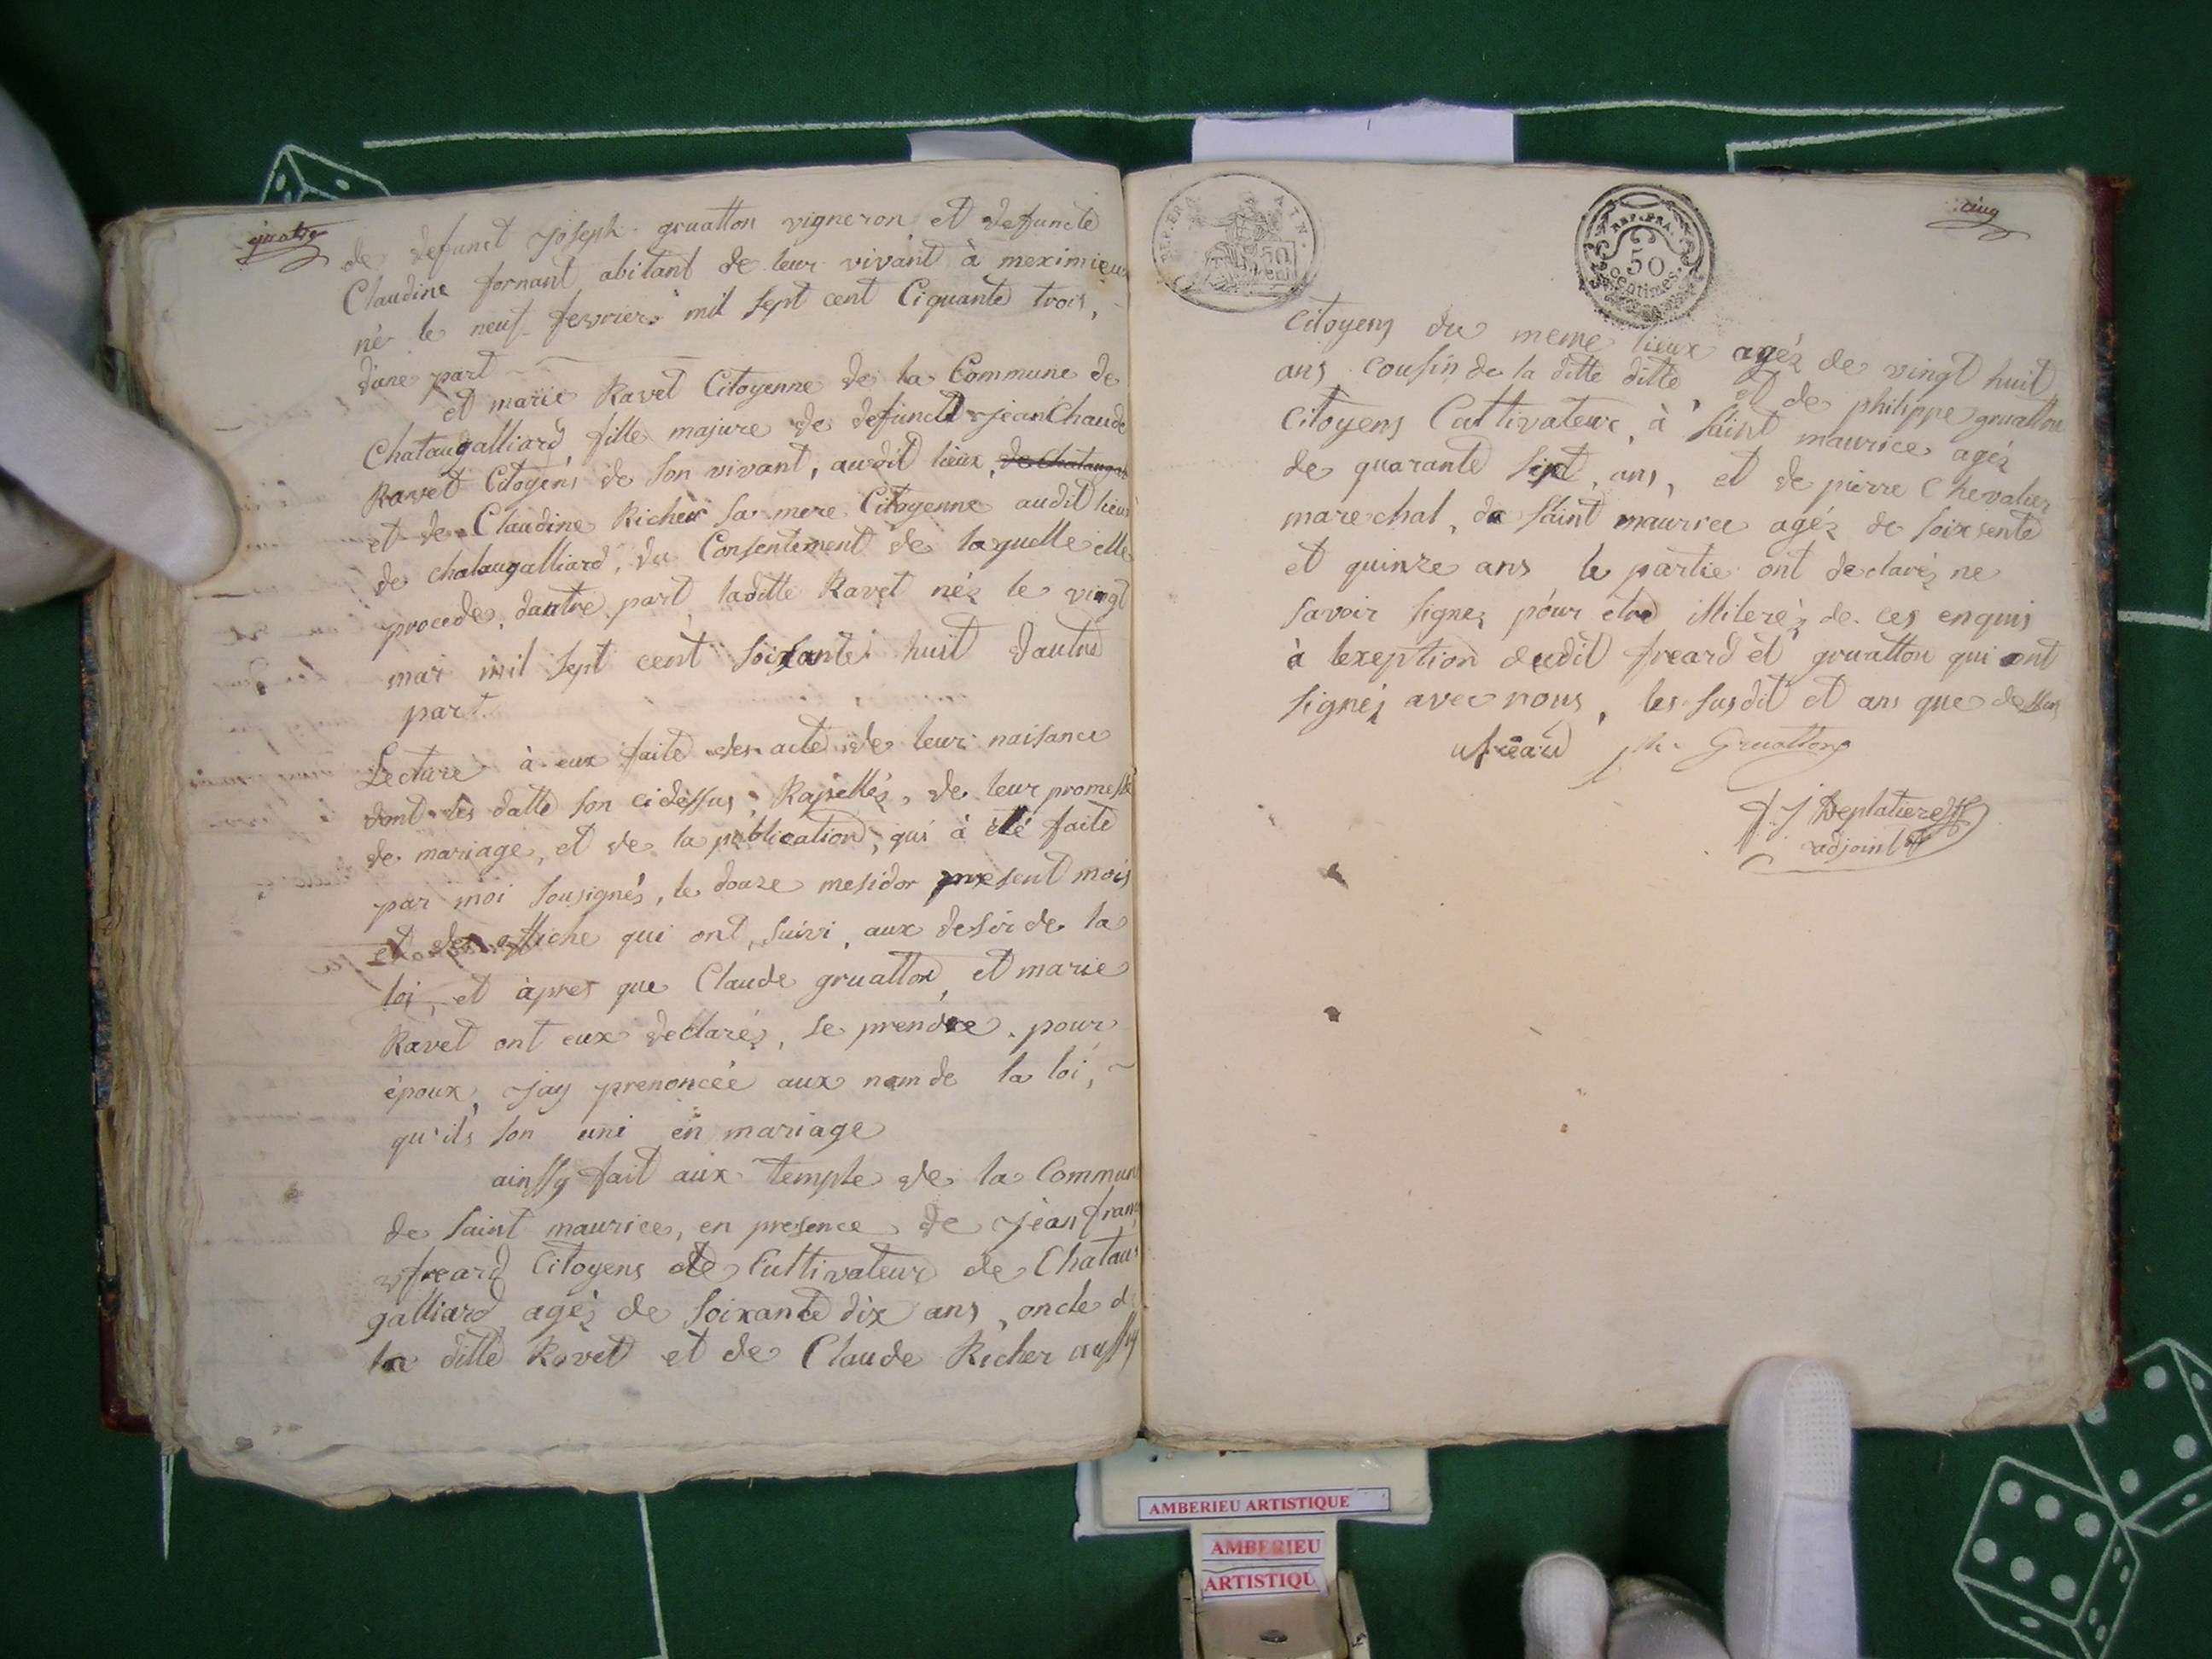 quatre
de defunct joseph gruatton vigneron et defuncte
Claudine fornant abitant de leur vivant à meximieu
né le neuf fevrier mil sept cent Ciquante trois,
dune part
et marie Ravet Citoyenne de la Commune de
Chataugalliard, fille majure de defunct jean Chaude
Ravet Citoyens de son vivant, audit lieux, de chataugal
et de Claudine Richer sa mere Citoyenne audit lieu
de chataugalliard, du Consentement de laquelle elle
procede, dautre part laditte Ravet néz le vingt
mar mil sept cent soixante huit dautre
part.
Lecture à eux faite des acte de leur naisance
dont les datte son cidessus, Rapellés, de leur promesse
de mariage, et de la publication, qui à été faite
par moi sousignés, le douze mesidor present mois
et des affiche qui ont suivi, aux desir de la
loi, et àpres que Claude gruatton, et marie
Ravet ont eux declaréz, se prendre pour
époux, jay prenoncéé aux nom de la loi,
qu'ils son uni en mariage
ainssy fait aux temple de la Commun
de saint maurice, en presence de jean fran
freard Citoyens de Cultivateur de Chatau
galliard agéz de soixante dix ans, oncle d
la ditte Ravet et de Claude Richer aussy
REP. FRA.
50
centimes.
cinq
citoyens du meme lieux agéz de vingt huit
ans cousin de la ditte ditte, et de philippe gruatton
Citoyens Cultivateur, à saint maurice agéz
de quarante sept, ans, et de pierre Chevalier
marechal, de saint maurice agéz de soixsente
et quinze ans le partie ont declaréz ne
savoir signez pour etre illiteréz de ces enquis
à lexeption dudit freard et gruatton qui ont
signéz avec nous, les susdit et ans que dessus
freard ph. Gruatton
f. j Deplatiere
adjoint
AMBERIEU ARTISTIQUE
AMBERIEU
ARTISTIQU